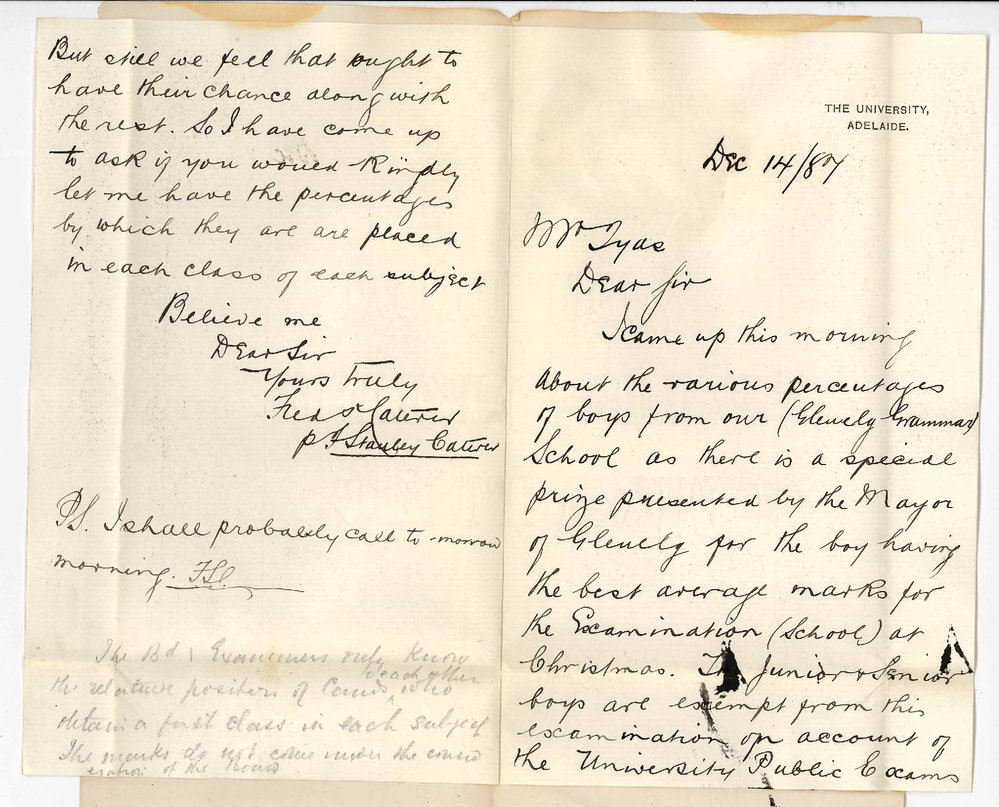 THE UNIVERSITY,
ADELAIDE.
Dec 14/87
Mr Tyas
Dear Sir
I came up this morning
About the various percentages
of boys from our (Glenelg Grammar)
School as there is a special
prize presented by the Mayor
of Glenelg for the boy having
the best average marks for
the Examination (School) at
Christmas. The Junior & Senior
boys are exempt from this
examination on account of
the University Public Exams
But still we feel that ought to
have their chance along with
the rest. So I have come up
to ask if you would kindly
let me have the percentages
by which they are are placed
in each class of each subject
Believe me
Dear Sir
Yours truly
Fred S Caterer
p F Stanley Caterer
PS. I shall probably call to-morrow
morning. FSC
The Bd of Examiners only know
the relative position to each other of Cands who
obtain a first class in each subject
The marks do not come under the consid
eration of the Board